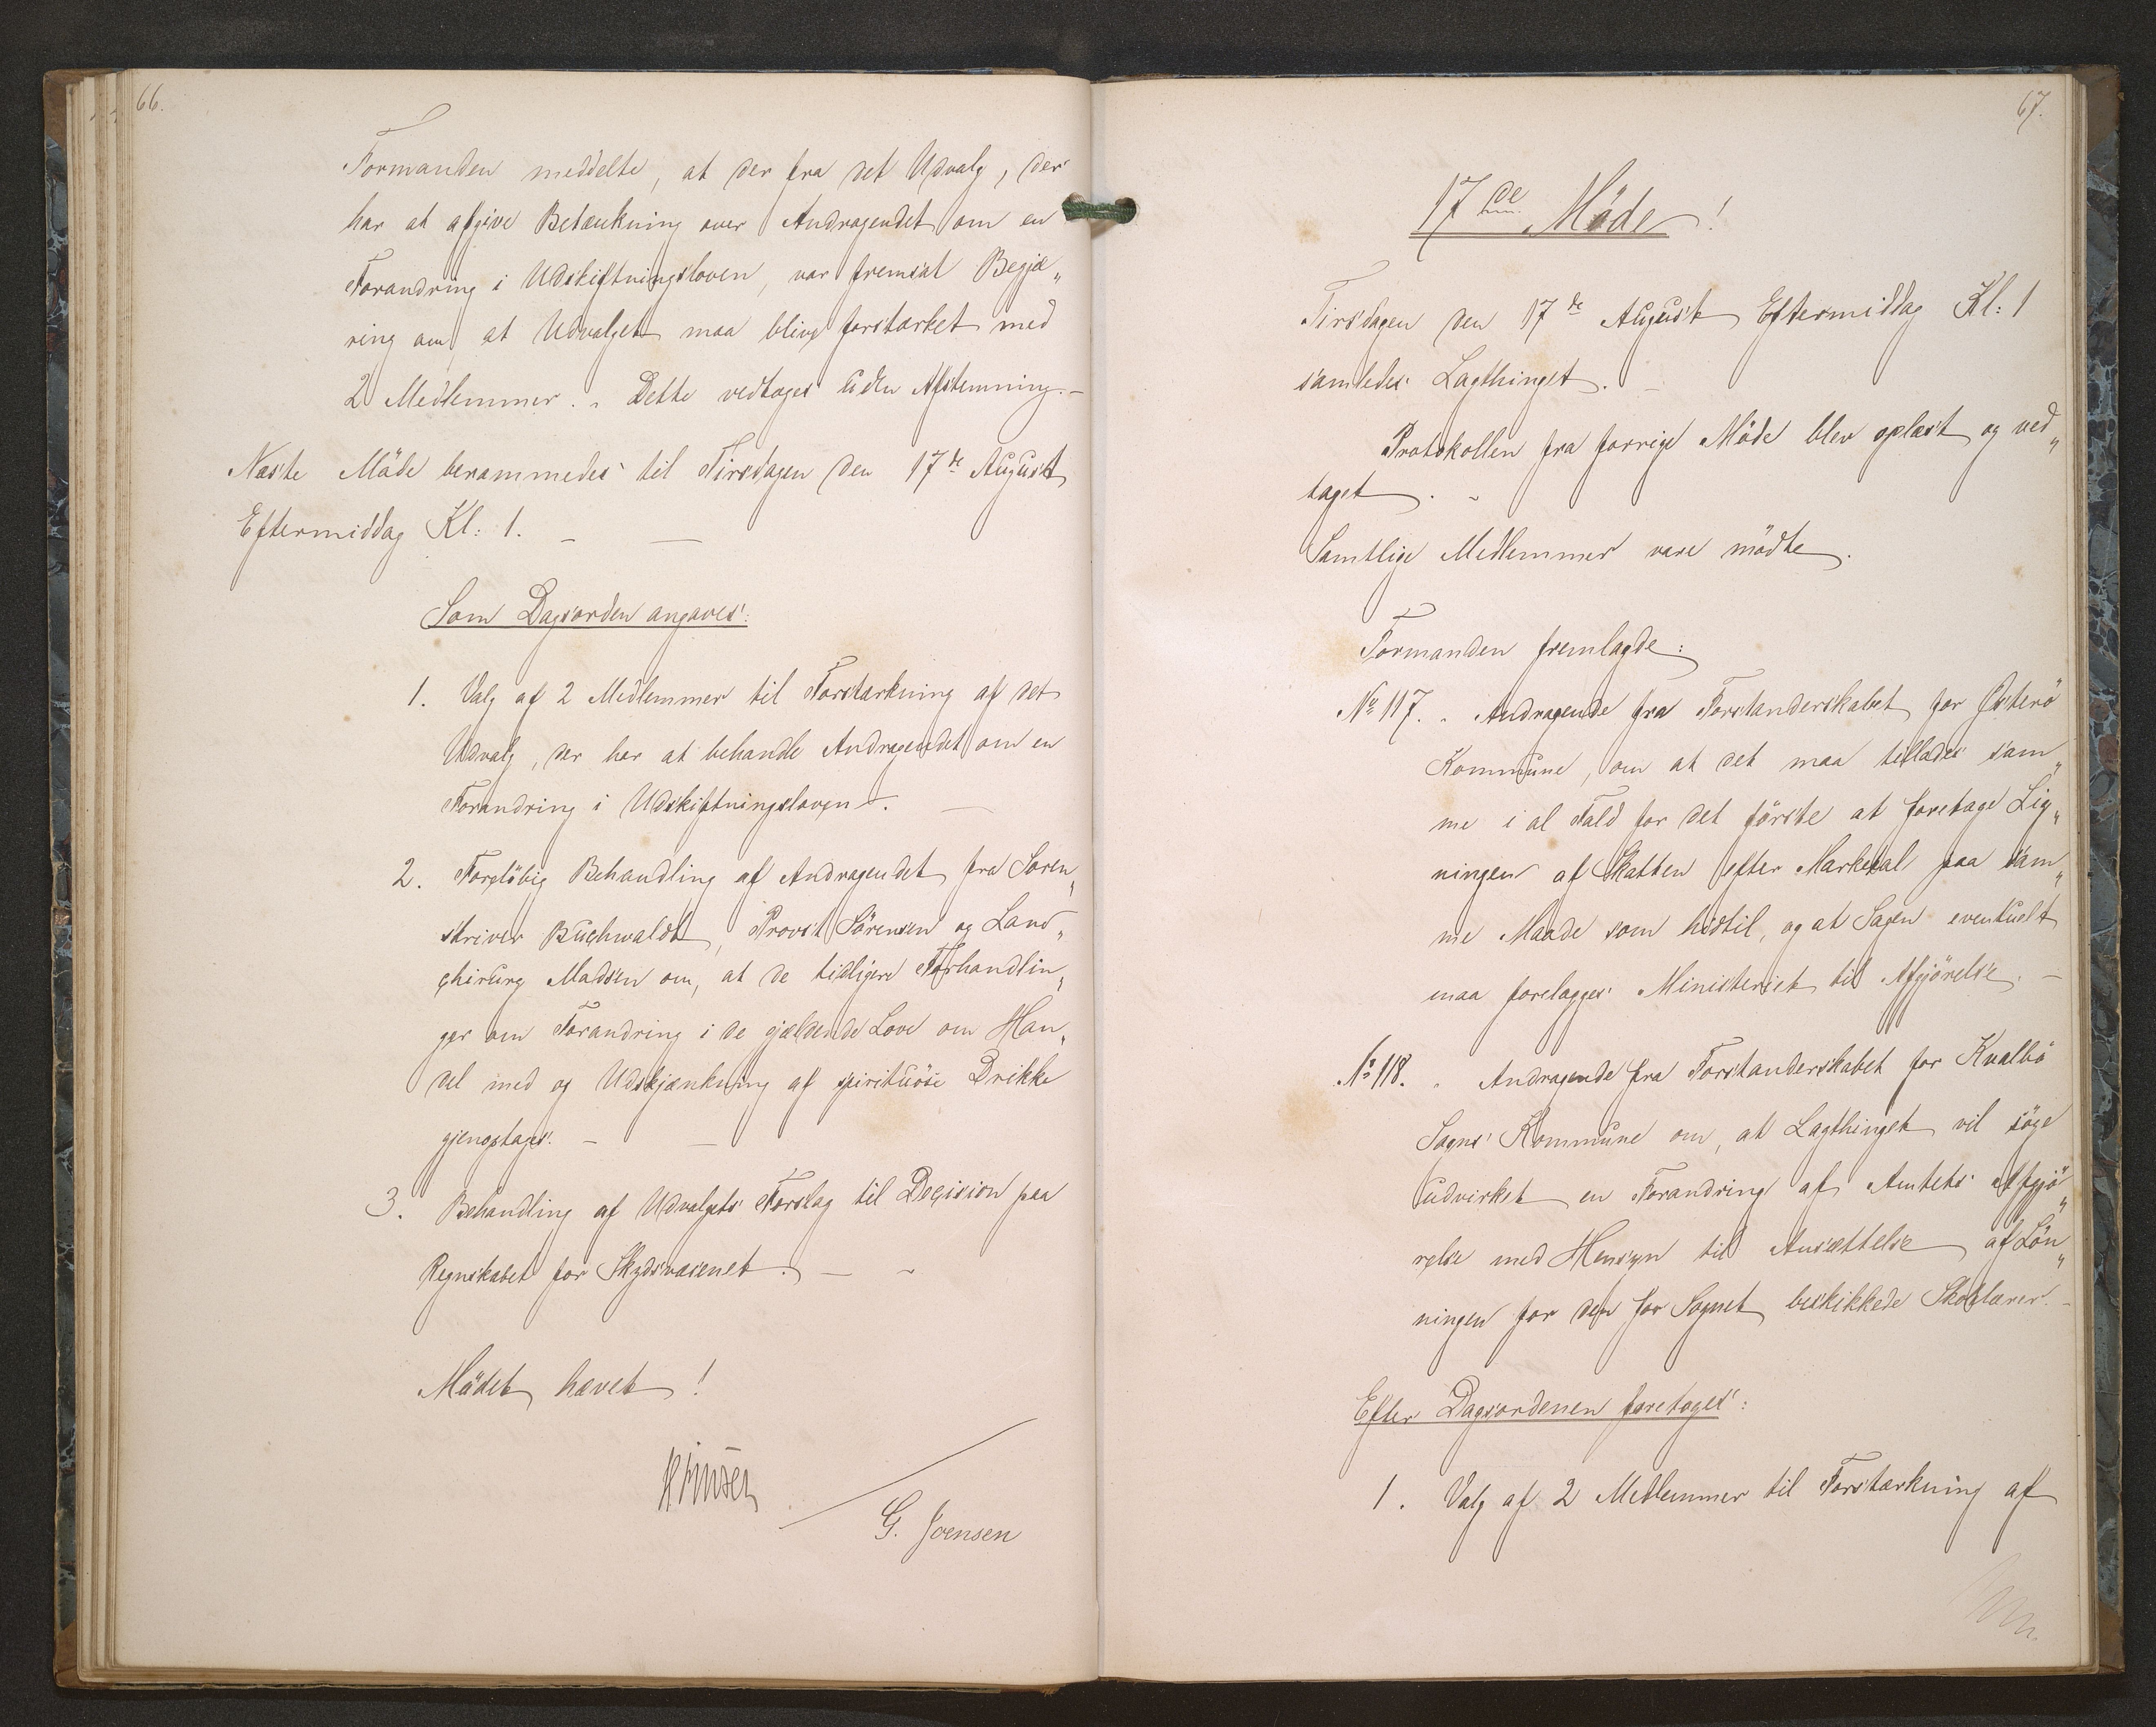 66.
Formanden meddelte, at der fra det Udvalg, der
har at afgive Betænkning over Andragendet om en
Forandring i Udskiftningsloven, var fremsat Begjæ„
ring om at Udvalget maa blive forstærket med
2 Medlemmer. „ Dette vedtages uden Afstemning. –
Næste Möde berammedes til Tirsdagen den 17de August
Eftermiddag Kl: 1. – –
Som Dagsorden angaves:
1. Valg af 2 Medlemmer til Forstærkning af det
Udvalg, der har at behandle Andragendet om en
Forandring i Udskiftningsloven. –
2. Foreløbig Behandling af Andragendet fra Soren„
skriver Buchwaldt, Provst Sörensen og Land„
chirurg Madsen om, at de tidligere Forhandlin„
ger om Forandring i de gjældende Love om Han„
del med og Udskjænkning af spirituöse Drikke
gjenoptages. – –
3. Behandling af Udvalgets Forslag til Decision paa
Regnskabet for Skydsvæsenet. – –
Mödet hævet!
G. Joensen
67.
17de Möde!
Tirsdagen den 17de August Eftermiddag Kl: 1
samledes Lagthinget. –
Protokollen fra forrige Möde blev oplæst og ved„
taget. –
Samtlige Medlemmer vare mödte.
Formanden fremlagde:
No 117. „ Andragende fra Forstanderskabet for Østerö
Kommune, om at det maa tillades sam„
me i al Fald for det förste at foretage Lig„
ningen af Skatten efter Marketal paa sam„
me Maade som hidtil, og at Sagen eventuelt
maa forelægges Ministeriet til Afgjörelse. –
No 118. „ Andragende fra Forstanderskabet for Kvalbö
Sogns Kommune om, at Lagthinget vil söge
udvirket en Forandring af Amtets Afgjö„
relse med Hensyn til Ansættelse af Lön„
ningen for den for Sognet beskikkede Skolelærer. –
Efter Dagsordenen foretoges:
1. Valg af 2 Medlemmer til Forstærkning af